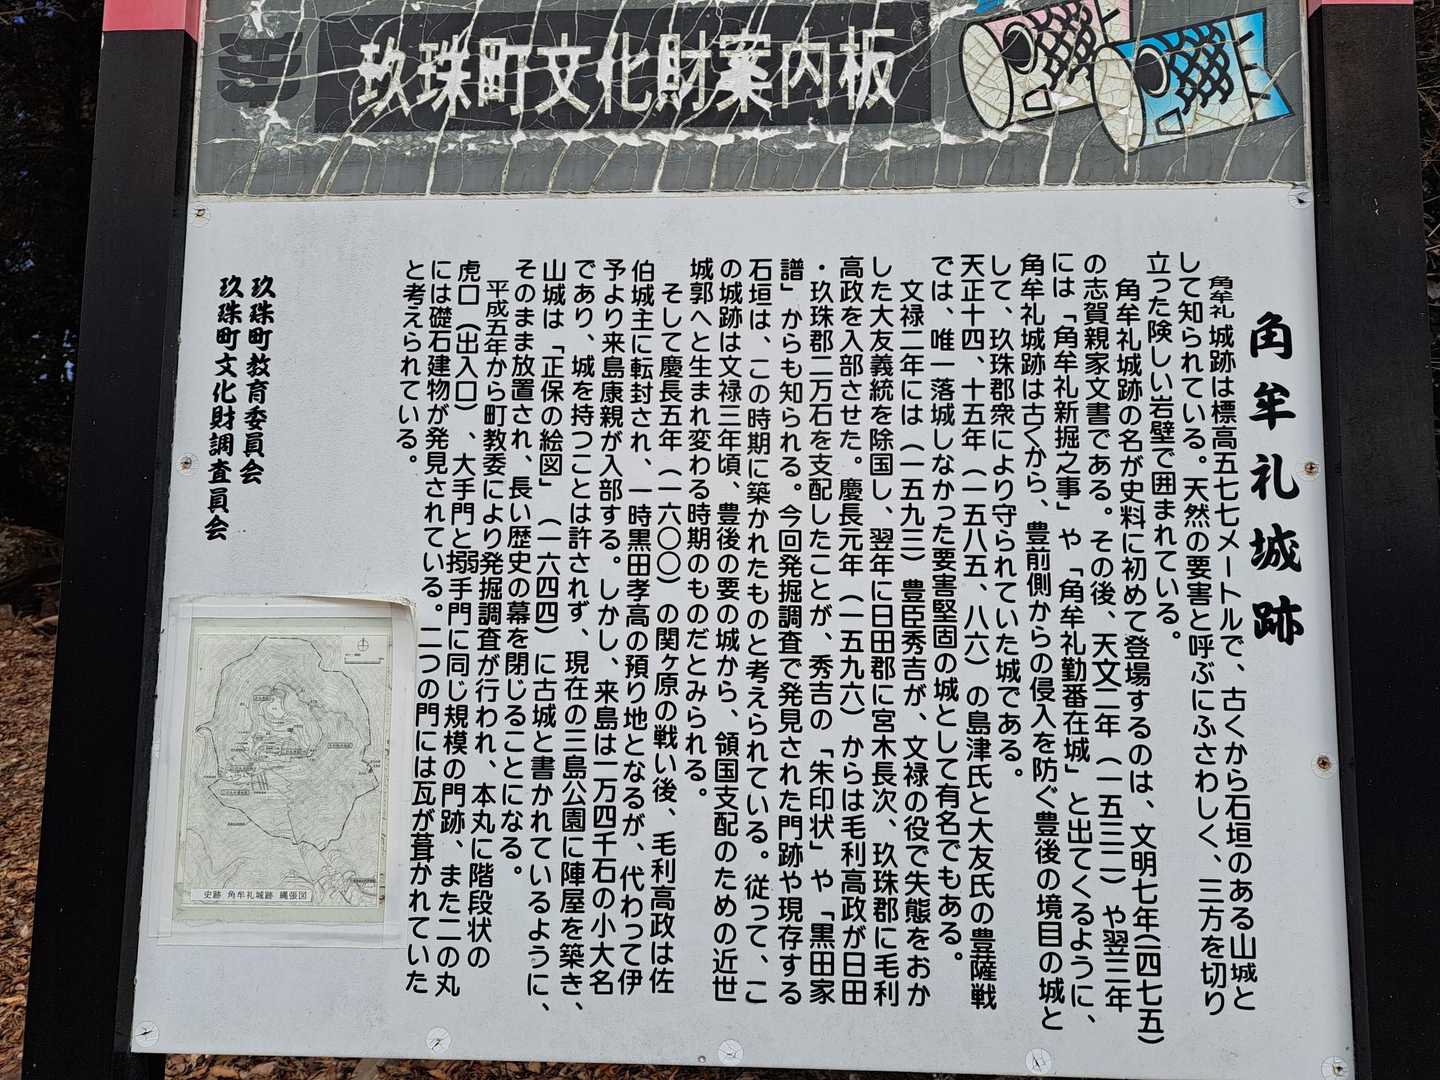 玖珠町文化財案内板
角牟礼城跡
角牟礼城跡は標高五七七メートルで、古くから石垣のある山城と
して知られている。天然の要害と呼ぶにふさわしく、三方を切り
立った険しい岩壁で囲まれている。
角牟礼城跡の名が史料に初めて登場するのは、文明七年(一四七五)
の志賀親家文書である。その後、天文二年(一五三三)や翌三年
には「角牟礼新掘之事」や「角牟礼勤番在城」と出てくるように、
角牟礼城跡は古くから、豊前側からの侵入を防ぐ豊後の境目の城と
して、玖珠郡衆により守られていた城である。
天正十四、十五年(一五八五、八六)の島津氏と大友氏の豊薩戦
では、唯一落城しなかった要害堅固の城として有名でもある。
文禄二年には(一五九三)豊臣秀吉が、文禄の役で失態をおか
した大友義統を除国し、翌年に日田郡に宮木長次、玖珠郡に毛利
高政を入部させた。慶長元年(一五九六)からは毛利高政が日田
・玖珠郡二万石を支配したことが、秀吉の「朱印状」や「黒田家
譜」からも知られる。今回発掘調査で発見された門跡や現存する
石垣は、この時期に築かれたものと考えられている。従って、こ
の城跡は文禄三年頃、豊後の要の城から、領国支配のための近世
城郭へと生まれ変わる時期のものだとみられる。
そして慶長五年(一六〇〇)の関ヶ原の戦い後、毛利高政は佐
伯城主に転封され、一時黒田孝高の預り地となるが、代わって伊
予より来島康親が入部する。しかし、来島は一万四千石の小大名
であり、城を持つことは許されず、現在の三島公園に陣屋を築き、
山城は「正保の絵図」(一六四四)に古城と書かれているように、
そのまま放置され、長い歴史の幕を閉じることになる。
平成五年から町教委により発掘調査が行われ、本丸に階段状の
虎口(出入口)、大手門と搦手門に同じ規模の門跡、また二の丸
には礎石建物が発見されている。二つの門には瓦が葺かれていた
と考えられている。
玖珠町教育委員会
玖珠町文化財調査員会
史跡 角牟礼城跡 縄張図